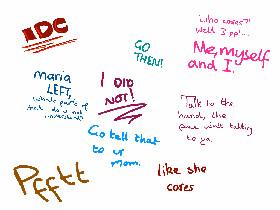 IDC
GO
THEN!
who cares?!
well I
Me, myself
and I.
maria
LEFT,
what part of
that do u not
understand?
I DID
NOT!
Talk to the
hand, the
face ain't talking
to ya.
Go tell that
to ur
mom.
Pfftt
like she
cares